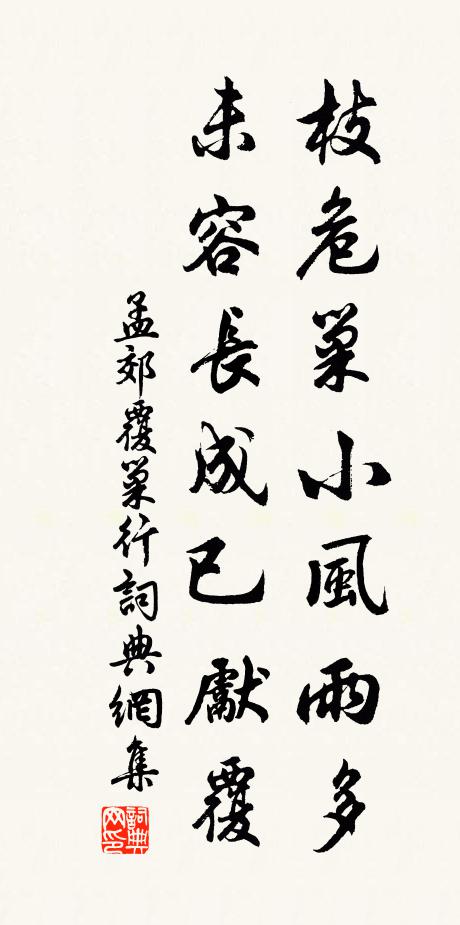 枝危巢小風雨多
未容長成已獻覆
孟郊覆巢行詞典網集
詞典网印